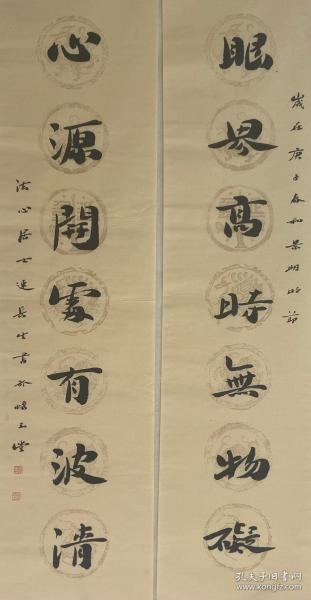 眼界高時無物礙
歲在庚子春和景明時節
心源開處有波清
法心居士連長生書於懷玉堂
孔夫子旧书网